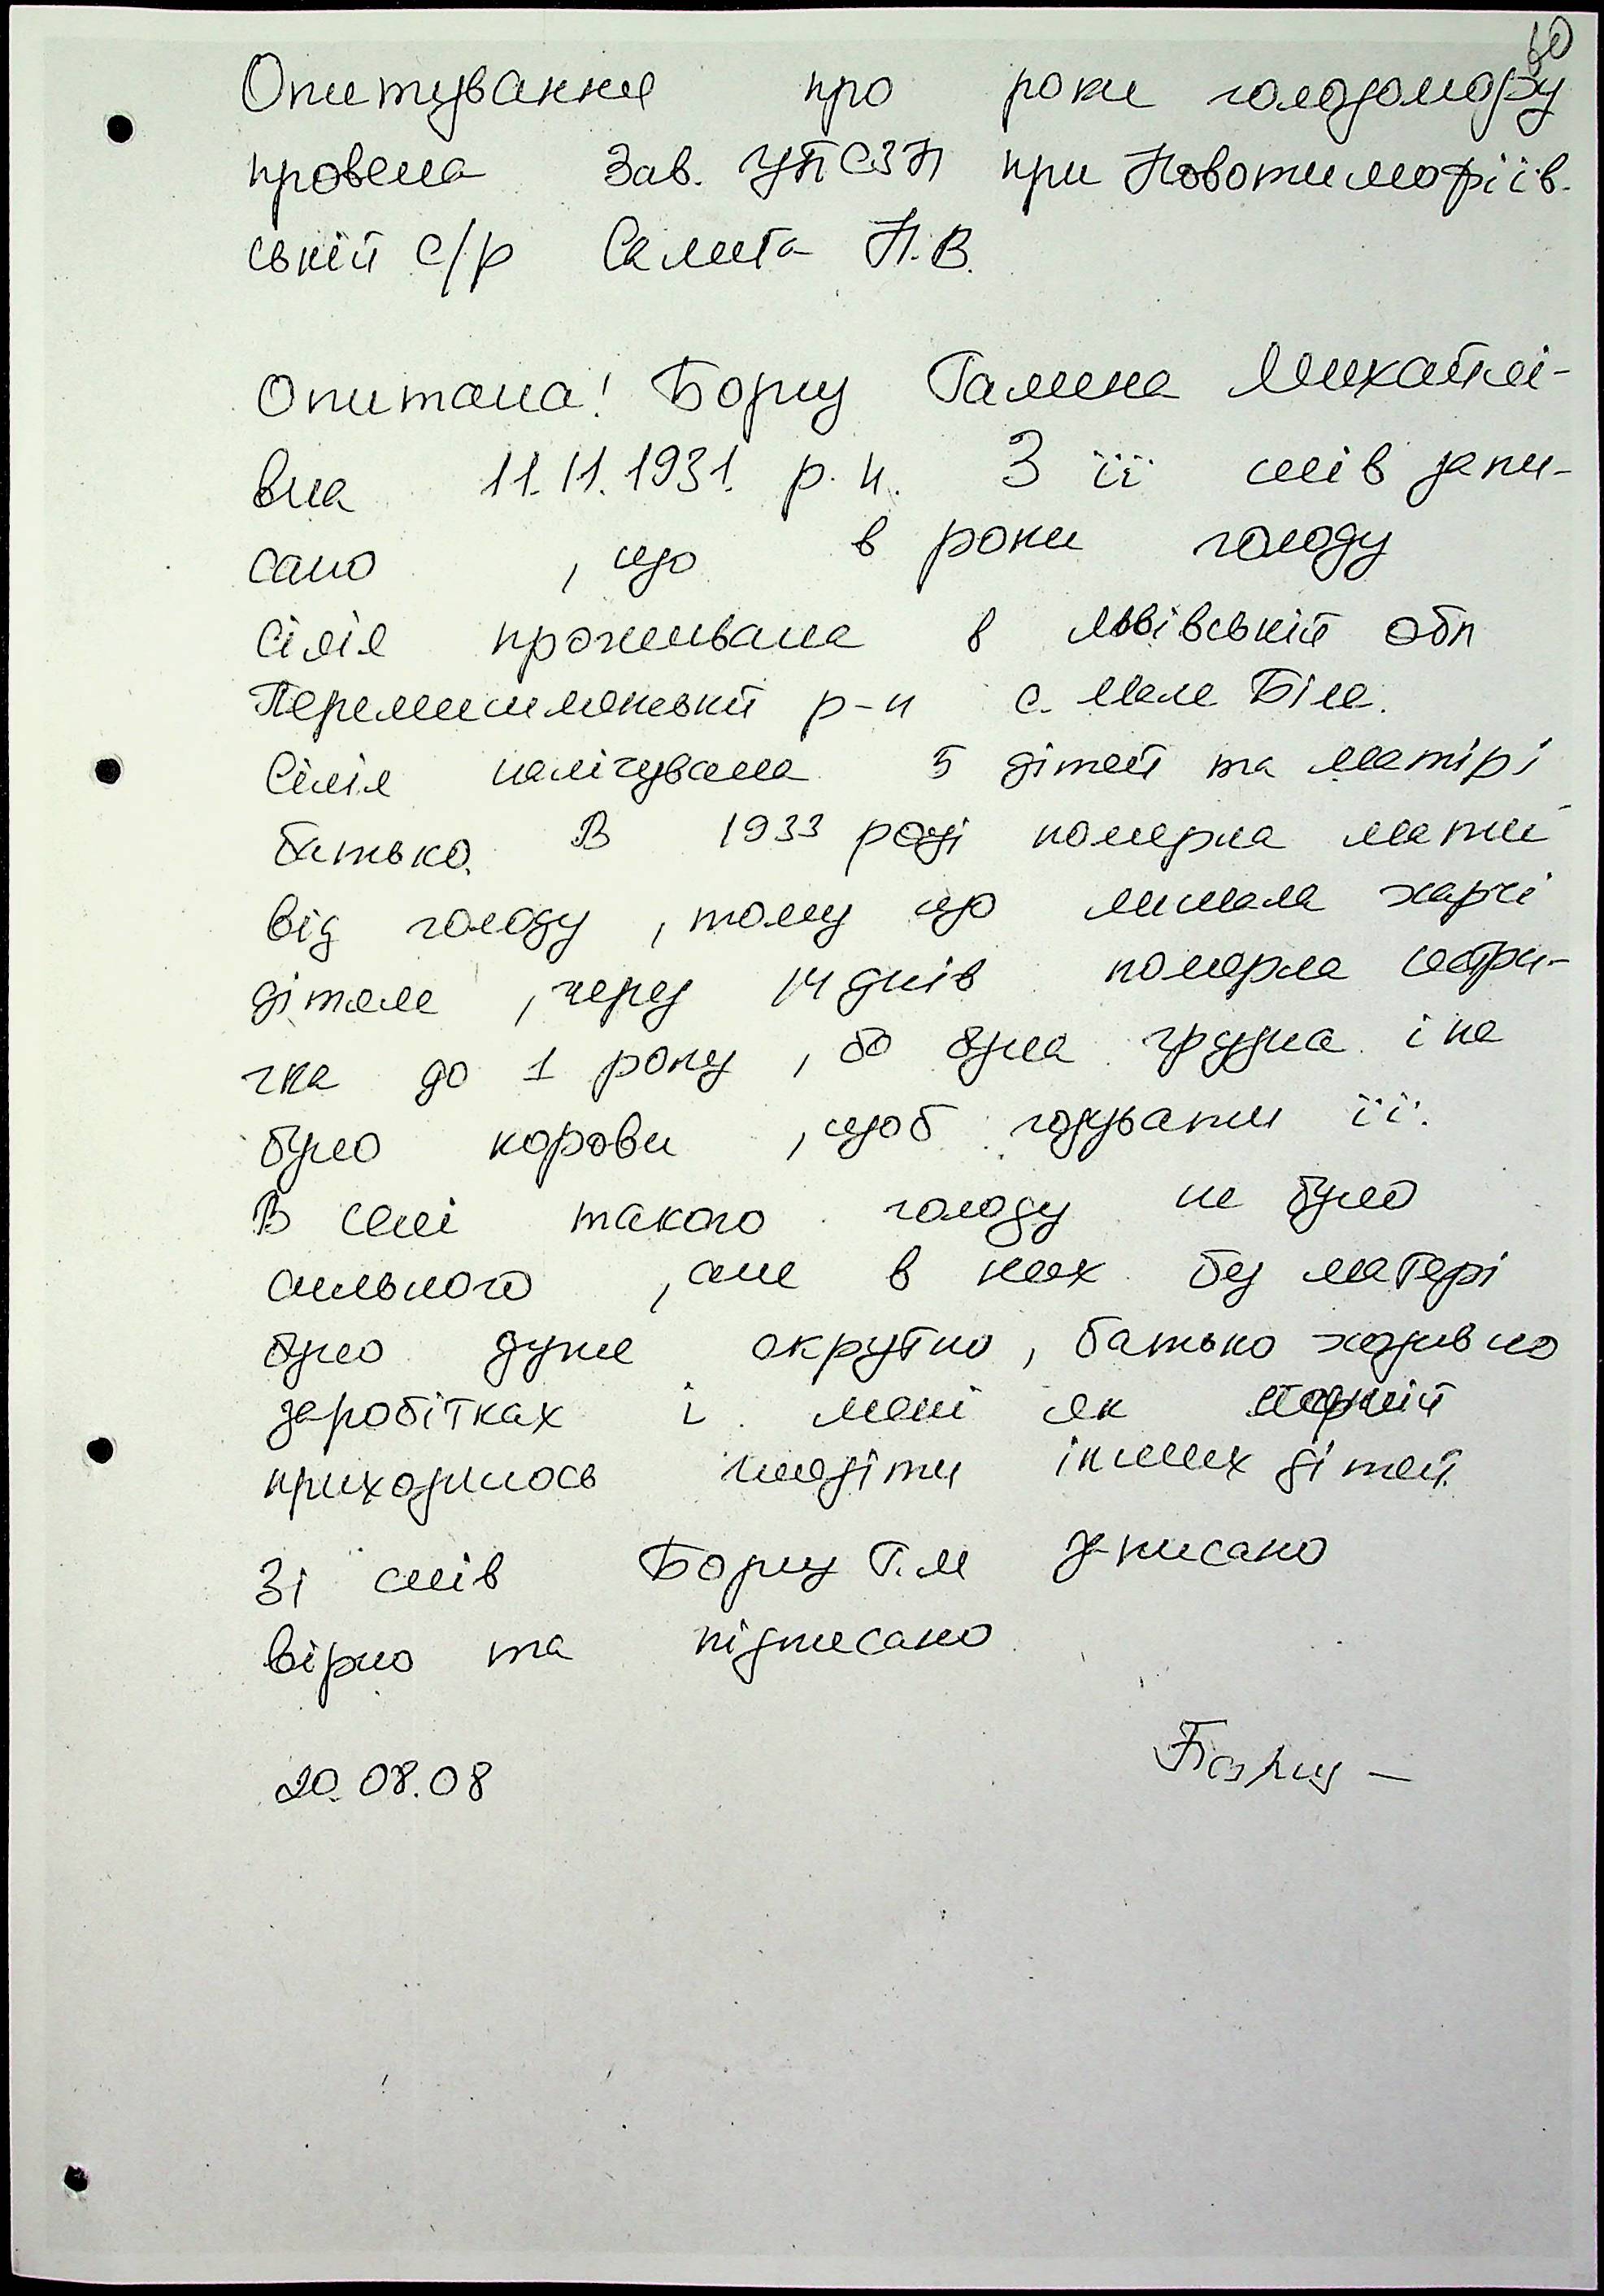 60
Опитування про роки голодомору
провела Зав. УПСЗН при Новотимофіїв-
ській с/р Салита Н.В.
Опитала! Борщ Галина Михайлі-
вна 11.11.1931. р.н. З її слів запи-
сано , що в роки голоду
сім'я проживала в Львівській обл
Перемишлянський р-н с. Мале Біле.
Сім'я налічувала 5 дітей та матірі
батько. В 1933 році померла мати
від голоду , тому що лишала харчі
дітям , через 14 днів померла сестри-
чка до 1 року , бо була грудна і не
було корови , щоб годувати її.
В селі такого голоду не було
сильного , але в нах без матері
було дуже окрутно, батько ходив по
заробітках і мені як старшій
приходилось глядіти інших дітей.
Зі слів Борщ Г.М записано
вірно та підписано
20.08.08 Борщ